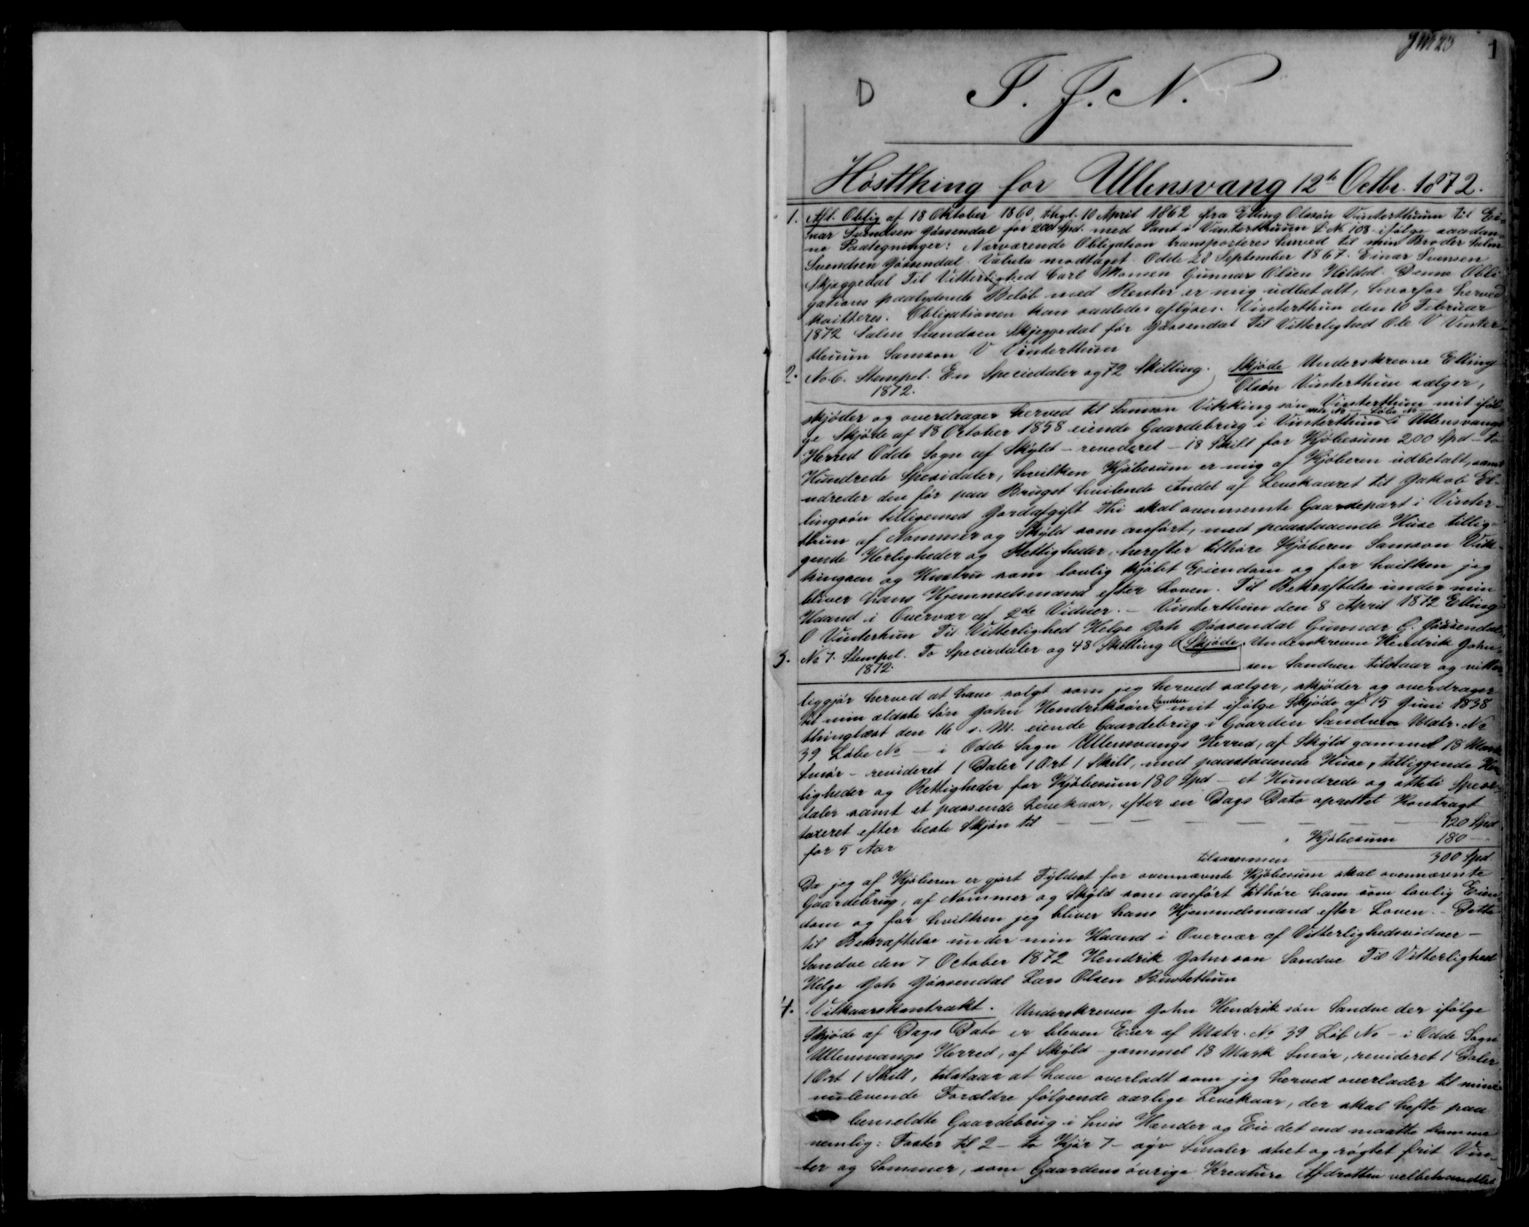 1
D
I. J. N.
Høstthing for Ullensvang 12te Octbr. 1872.
1. Afl. Oblig af 18 Oktober 1860, thgl. 10 April 1862 fra Elling Olsøn Vinterthuun til Ei-
nar Svendsen Jøssendal for 200 Spd. med Pant i Vinterthuun L. No 108 ifølge saadan-
ne Paategninger: Nærværende Obligation transporteres herved til min Broder
Svendsen Jøssendal. Valuta modtaget. Odde 28 September 1867. Einar Svensen
Skjeggedal Til Vitterlighed Carl Monsen Gunnar Olsen Denne Obli-
gations paalydende Beløb med Renter er mig udbetalt, hvorfor herved
kvitteres. Obligationen kan saaledes aflyses. Vinterthun den 10 Februar
1872 Svendsen Skjeggedal før Jøssendal Til Vitterlighed Ole V Vinter-
thuun Samson V Vinterthuun
2. No 6. Stempel. En Speciedaler og 72 Skilling. Skjøde Underskrevne Elling
1872. Olsøn Vinterthun sælger,
skjøder og overdrager herved til Samson Vikking søn Vinterthun mit iføl-
Matr. No — Løbe No —
ge Skjøde af 18 October 1858 eiende Gaardebrug i Vinterthun i Ullensvangs
Herred Odde Sogn af Skyld - revederet - 18 Skill for Kjøbesum 200 Spd - to
Hundrede Spesidaler, hvilken Kjøbesum er mig af Kjøberen udbetalt, samt
udreder den før paa Bruget hvilende Andel af Levekaaret til Jakob El-
lingsøn tilligemed Jordafgift thi skal ovennemte Gaardepart i Vinter-
thun af Nommer og Skyld som anført, med paastaaende Huse tillig-
gende Herligheder og Rettigheder, herefter tilhøre Kjøberen Samson Vik-
kingsen og Hustru som lovlig kjøbt Eiendom og for hvilken jeg
bliver hans Hjemmelsmand efter Loven. Til Bekræftelse under min
Haand i Overvær af 2de Vidner. - Vinterthun den 8 April 1872 Elling
O Vinterhun Til Vitterlighed Helge Joh Jøssendal Gunnar G. Jøssendal
3. No 7. Stempel. To Speciedaler og 48 Skilling Skjøde. Underskreven Hendrik John-
1872. sen Sandven tilstaar og vitter-
liggjør herved at have solgt som jeg herved sælger, skjøder og overdrager
til min ældste Søn John Hendriksøn Sandve mit ifølge Skjøde af 15 Juni 1838
thinglæst den 16 s. M. eiende Gaardebrug i Gaarden Sandven Matr. No
39 Løbe No — i Odde Sogn Ullensvangs Herred, af Skyld gammel 18 Mark
Smør - revideret 1 Daler 1 Ort 1 Skill, med paastaaende Huse, tilliggende Her-
ligheder og Rettigheder for Kjøbesum 180 Spd - et Hundrede og otteti Spesi-
daler samt et passende Levekaar, efter en Dags Dato oprettet Kontragt
taxeret efter beste Skjøn til — — — — — — — 120 Spd
for 5 Aar Kjøbesum 180 —
tilsammen 300 Spd
Da jeg af Kjøberen er gjort Fyldest for ovennævnte Kjøbesum skal ovennævnte
Gaardebrug, af Nommer og Skyld som anført tilhøre ham som lovlig Eien-
dom og for hvilken jeg bliver hans Hjemmelsmand efter Loven. - Dette
til Bekræftelse under min Haand i Overvær af Vitterlighedsvidner -
Sandve den 7 October 1872 Hendrik Johnson Sandve Til Vitterlighed
Helge Joh Jøssendal Lars Olsen
4. Vilkaarskontrakt. Underskreven John Hendrik søn Sandve der ifølge
Skjøde af Dags Dato er bleven Eier af Matr. No 39 Løb No — i Odde Sogn
Ullensvangs Herred, af Skyld - gammel 18 Mark Smør, revideret 1 Daler
1 Ort 1 Skill, tilstaar at have overladt som jeg herved overlader til mine
nulevende Forældre følgende aarlige Levekaar, der skal hefte paa
bemeldte Gaardebrug i hvis Hænder og Eie det end maatte komme
nemlig: Foster til 2 - to Kjør 7 - syv Smaler stet og røgtet frit Vin-
ter og Sommer, som Gaardens øvrige Kreature Afdrotten velbehandlet